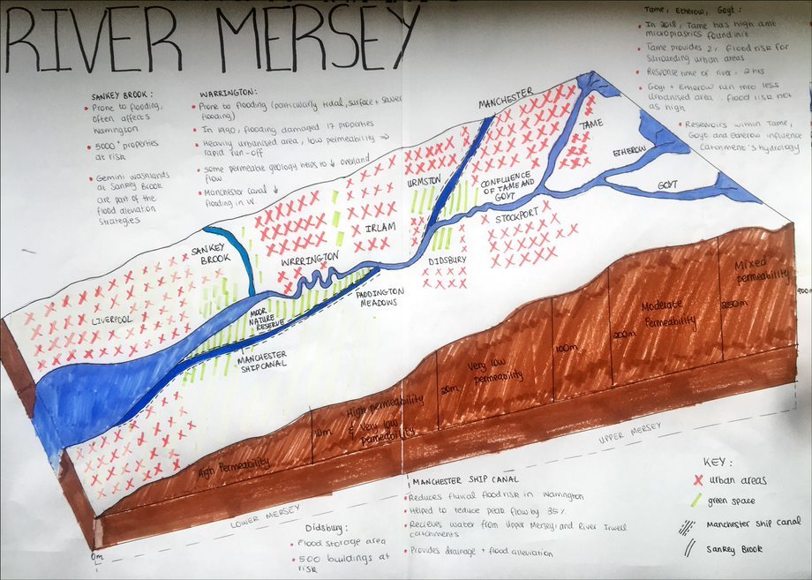 RIVER MERSEY
SANKEY BROOK:
• Prone to flooding,
often affects
Warrington
• 5000+ properties
at risk
• Gemini washlands
at Sankey Brook
are part of the
flood alleviation
strategies
WARRINGTON:
• Prone to flooding (particularly tidal, surface + sewer
flooding)
• In 1990, flooding damaged 17 properties
• Heavily urbanised area, low permeability →
rapid run-off
• Some permeable geology helps to ↓ overland
flow
• Manchester Canal ↓
flooding in W.
Tame, Etherow, Goyt:
• In 2018, Tame has high amt
microplastics found in it
• Tame provides flood risk for
surrounding urban areas
• Response time of river: 2 hrs
• Goyt + Etherow run into less
urbanised area: flood risk not
as high
• Reservoirs within Tame,
Goyt and Etherow influence
catchment's hydrology
MANCHESTER
TAME
ETHEROW
GOYT
URMSTON
CONFLUENCE
OF TAME AND
GOYT
STOCKPORT
IRLAM
DIDSBURY
SANKEY
BROOK
WRRINGTON
PADDINGTON
MEADOWS
LIVERPOOL
MOOR
NATURE
RESERVE
MANCHESTER
SHIP CANAL
Mixed
permeability
Moderate
Permeability
Very low
permeability
High permeability
& Very low
Permeability
High Permeability
100m
200m
0m
LOWER MERSEY
UPPER MERSEY
MANCHESTER SHIP CANAL
• Reduces fluvial flood risk in Warrington
• Helped to reduce peak flow by 35%
• Recieves water from Upper Mersey and River Irwell
catchments
• Provides drainage + flood alleviation
Didsbury:
• Flood storage area
• 500 buildings at
risk
KEY:
urban areas
green space
Manchester Ship Canal
Sankey Brook